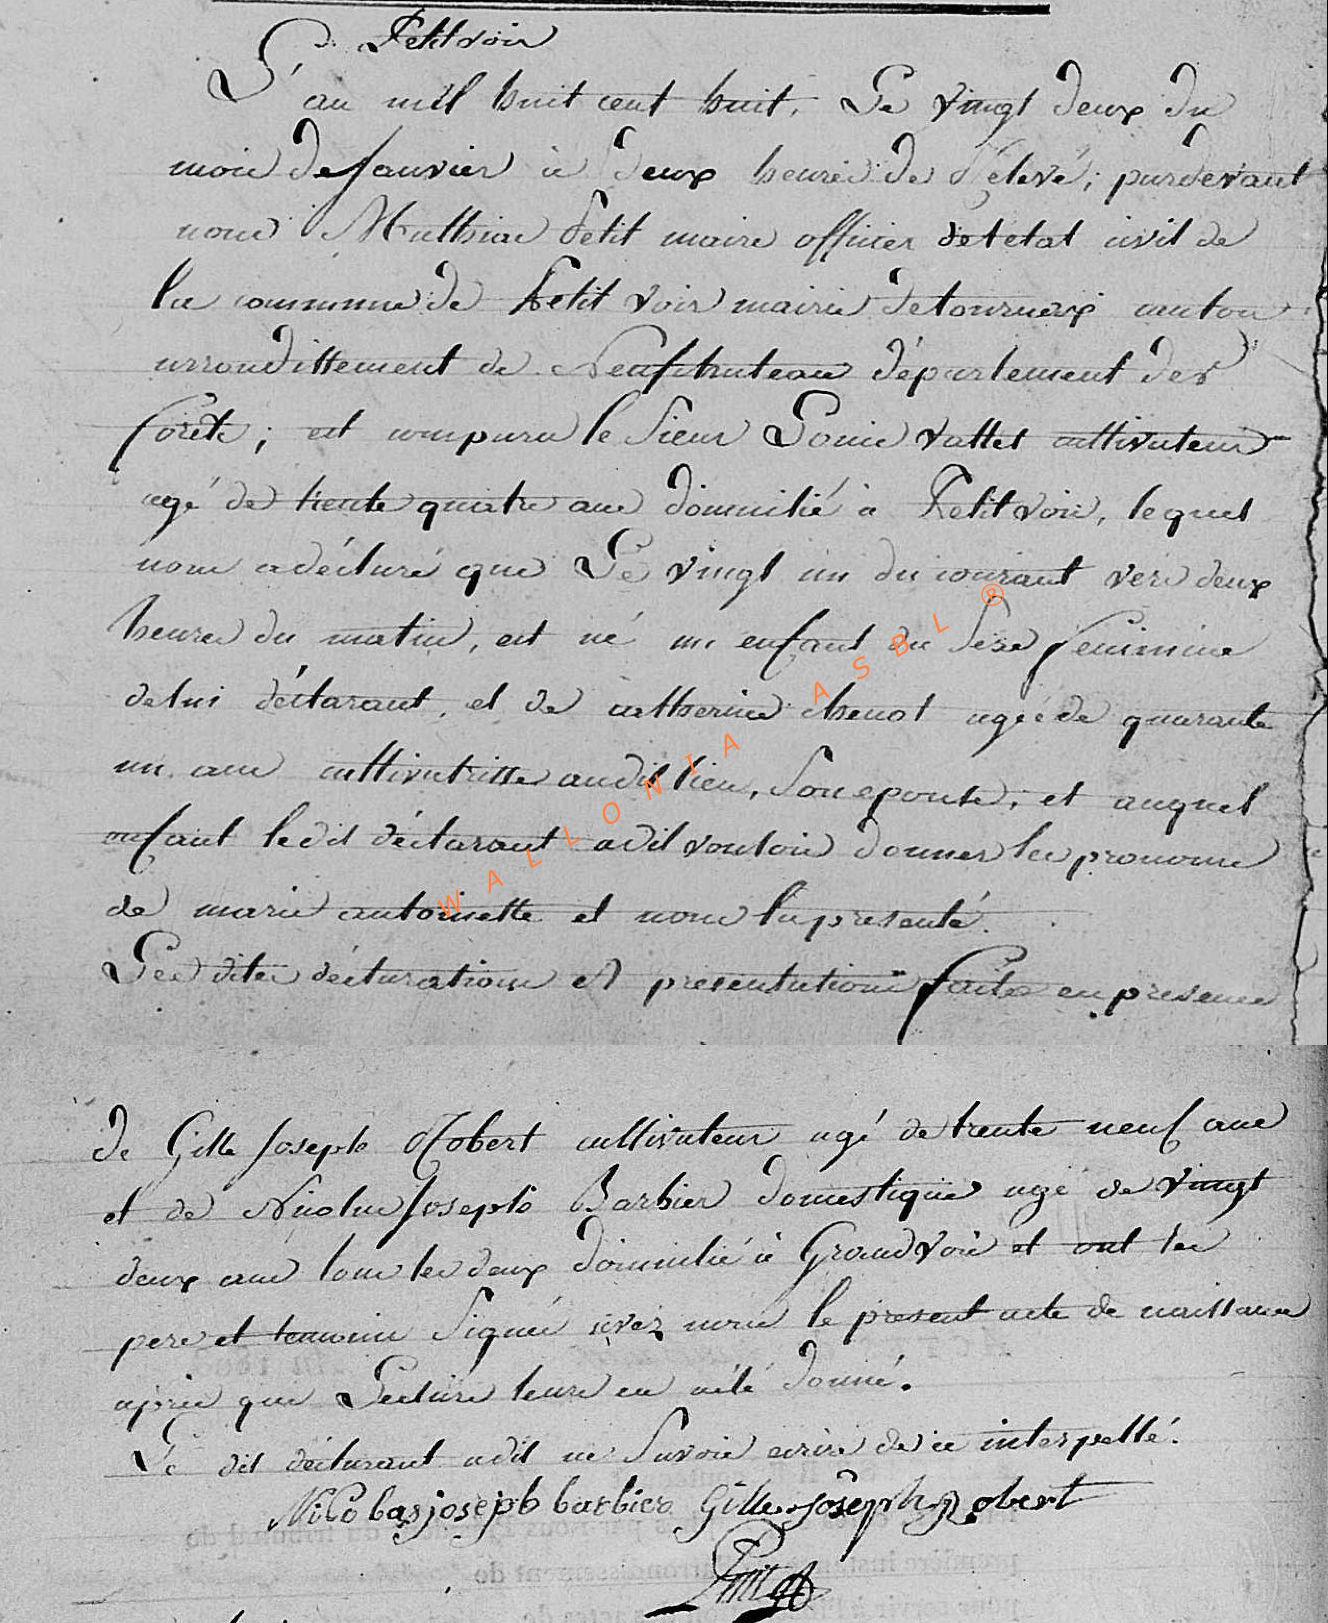 Petitvoir
L'an mil huit cent huit, Le vingt deux du
mois de Janvier à deux heures de relevé; pardevant
nous Mathias Petit maire officier det etat civil de
la commune de Petit voir mairie de tournay canton
arrondissement de Neufchateau département des
forêts; est comparu le Sieur Louis vattet cultivateur
agé de trente quatre ans domicilié à Petitvoir, lequel
nous a déclaré que Le vingt un du courant vers deux
heures du matin, est né un enfant du Sexe feminine
de lui déclarant, et de catherine chenot agée de quarante
un ans cultivatrisse audit lieu, Son epouse; et auquel
enfant ledit déclarant a dit vouloir donner les pronoms
de marie antoinette et nous l'a presenté.
Les dites déclarations et presentations faites en presence
de Gille Joseph Robert cultivateur agé de trente neuf ans
et de Nicolas Joseph Barbier domestique agé de vingt
deux ans tous les deux domicilié à Grandvoir et ont les
pere et temoins Signés avez nous le present acte de naissance
aprés que Lecture leurs en a été donné.
Le dit déclarant a dit ne Savoir ecrire de ce interpellé.
Nicolas joseph barbier Gille joseph Robert
Petit
WALLONIA ASBL ®